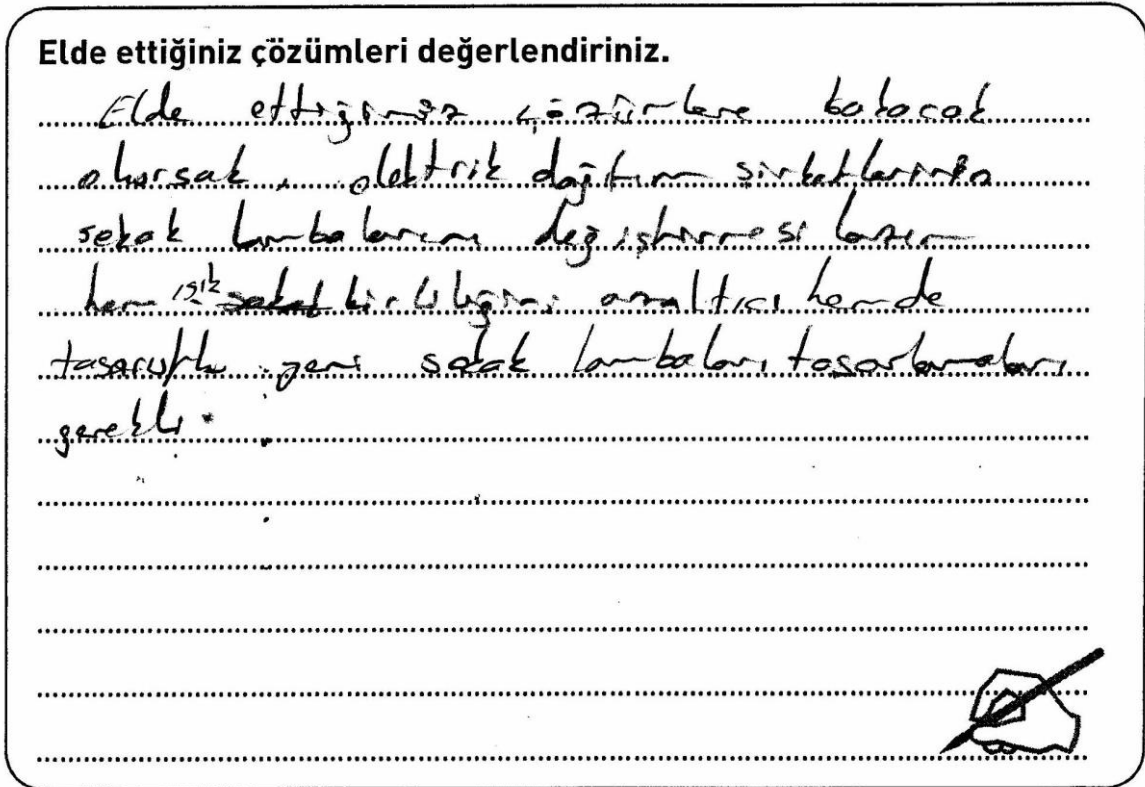 Elde ettiğiniz çözümleri değerlendiriniz.
Elde ettiğimiz çözümlere bakacak
olursak, elektrik dağıtım şirketlerinin
sokak lambalarını değiştirmesi lazım
hem ışık sokak kirliliğini azaltıcı hemde
tasaruflu yeni sokak lambaları tasarlamaları
gerekli.